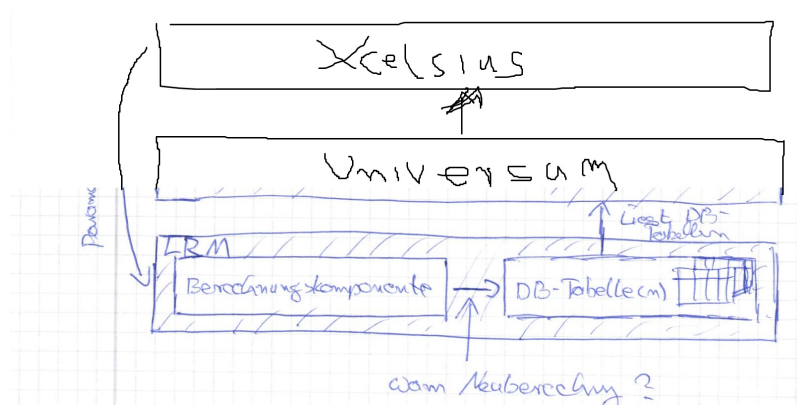 Xcelsius
Universum
Params
Liest DB-
Tabellen
LRM
Berechnungskomponente
DB-Tabelle(n)
Wann Neuberechng ?